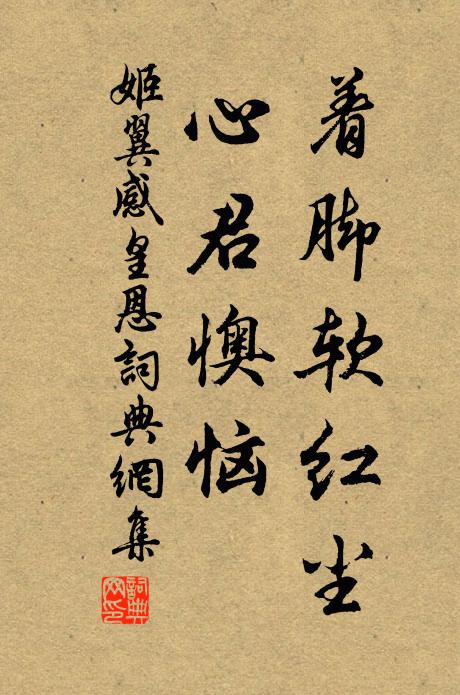 着脚软红尘
心君懊恼
姬翼感皇恩詞典網集
詞典
网印